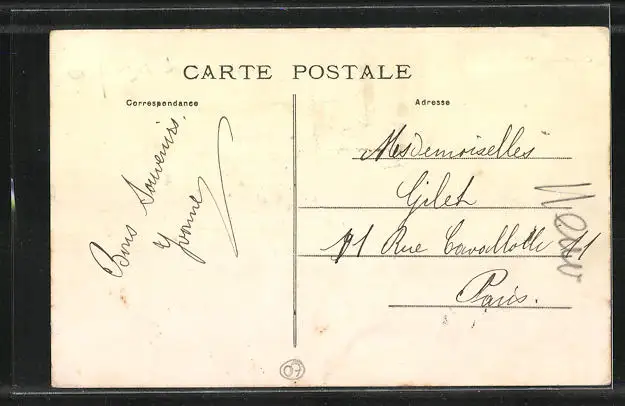 CARTE POSTALE
Correspondance
Adresse
Bons Souvenirs.
Yvonne
Mesdemoiselles
Gilet
11 Rue Cavallotti 11
Paris.
07